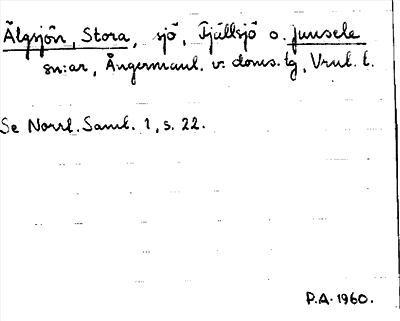 Älgsjön, Stora, sjö, Fjällsjö o. Junsele
sn:ar, Ångermanl. v. doms.tg, Vnl. l.
Se Norrl. Saml. 1, s. 22.
P.A. 1960.